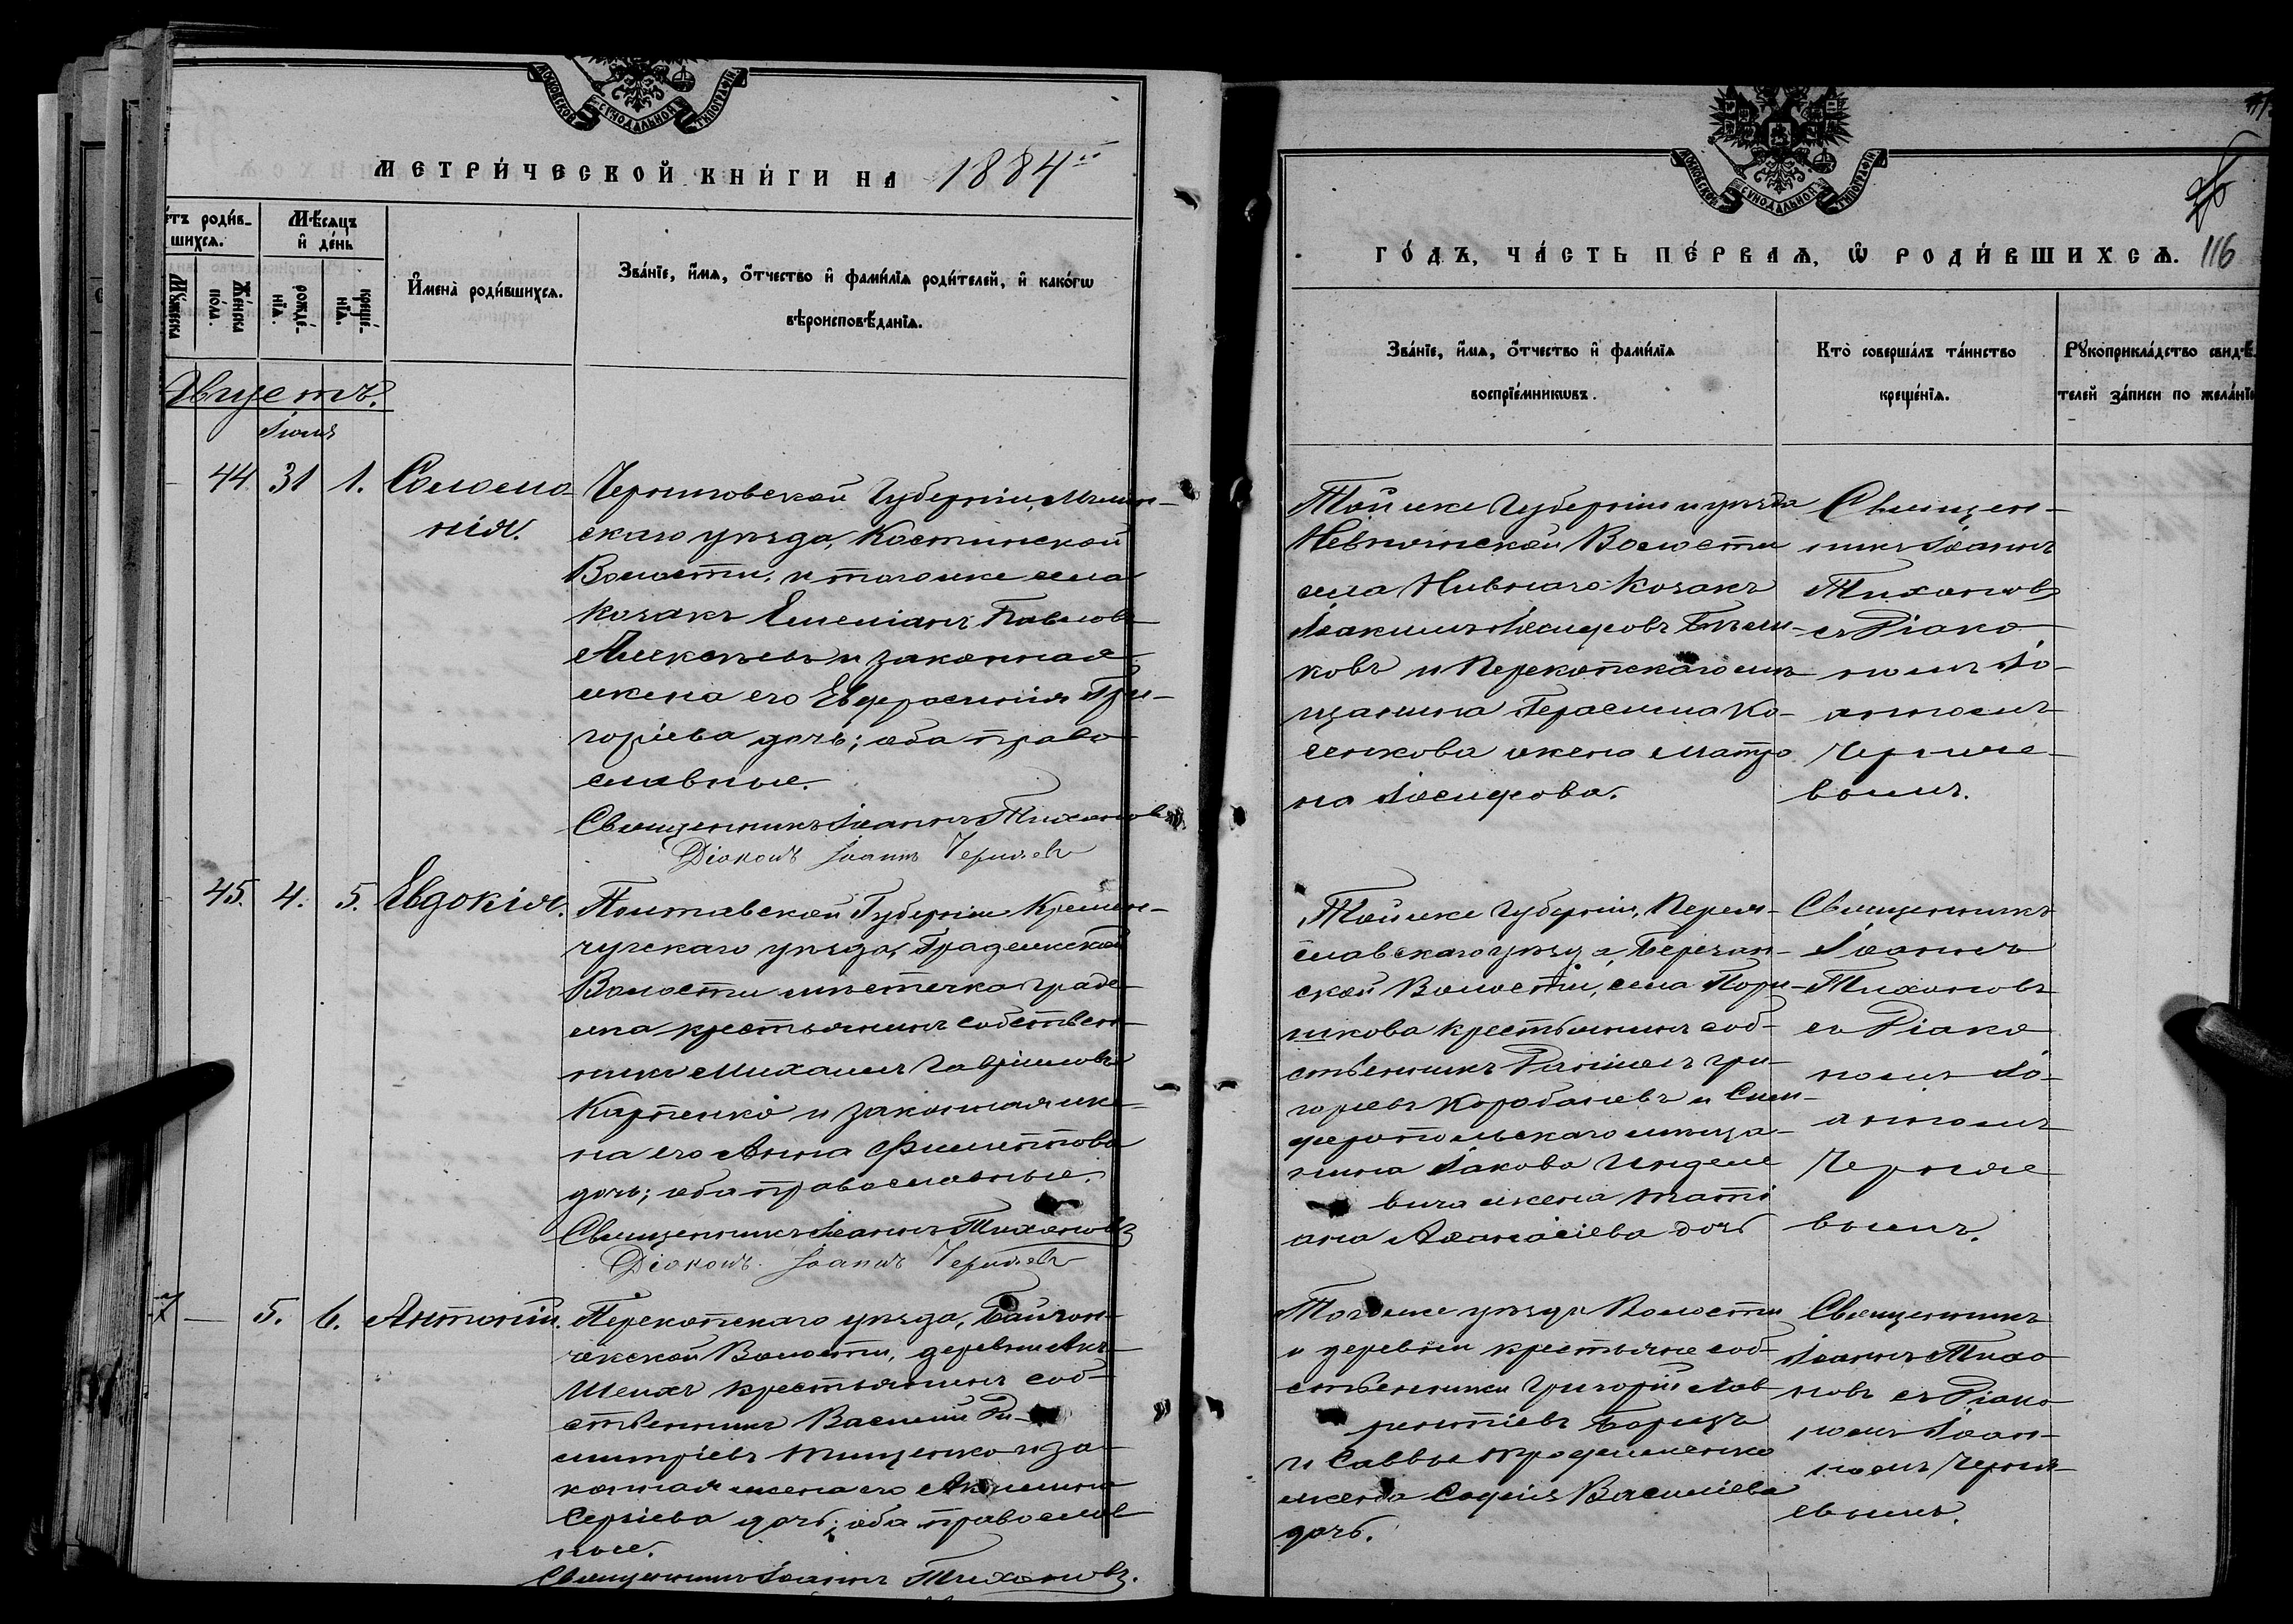 МОСКОВСКОЙ СѴНОДАЛЬНОЙ ТИПОГРАФІИ
МЕТРИ́ЧЕСКОЙ КНИ́ГИ НА 1884й
Мѣ́сяцъ
и҆ де́нь
роди́в-
шихся.
Мꙋжеска
Же́нска
по́ла.
рожде́-
нїя.
креще́-
нїя.
И҆мена̀ роди́вшихся.
Зва́нїе, и҆́мя, ѻ҆́тчество и҆ фами́лїя роди́телей, и҆ како́гѡ
вѣроисповѣ́данїя.
Августъ.
Іюля
44 31 1. Соломо-
нія.
Черниговской Губерніи, Мглин-
скаго уѣзда, Костинской
Волости, и тогоже села
козакъ Емеліанъ Павловъ
Алексѣевъ и законная
жена его Евфросинія Гри-
горіева дочь; оба право-
славные.
Священникъ Іоаннъ Тихоновъ
Діаконъ Іоаннъ Черняевъ
45. 4. 5. Евдокія.
Полтавской Губерніи Кремен-
чугскаго уѣзда, Градижской
Волости мѣстечка Граде-
жка крестьянинъ собствен-
никъ Михаилъ Гавріиловъ
Карпенко и законная же-
на его Анна Филиппова
дочь; оба православные.
Священникъ Іоаннъ Тихоновъ
Діаконъ Іоаннъ Черняевъ
— 5. 6. Антоній.
Перекопскаго уѣзда,
Волости, деревни Акъ-
Шеихъ крестьянинъ соб-
ственникъ Василій Ди-
митріевъ Тищенко и за-
конная жена его Акилина
Сергіева дочь; оба православ-
ные.
Священникъ Іоаннъ Тихоновъ.
МОСКОВСКОЙ СѴНОДАЛЬНОЙ ТИПОГРАФІИ
ГО́ДЪ, ЧА́СТЬ ПЕ́РВАЯ, Ѡ҆ РОДИ́ВШИХСЯ. 116
Зва́нїе, и҆́мя, ѻ҆́тчество и҆ фами́лїя
воспрїе́мникѡвъ.
Кто̀ соверша́лъ та́инство
креще́нїя.
Рꙋкоприкла́дство свидѣ́-
телей за́писи по жела́нїю
Тойже Губерніи и уѣзда
Волости
села Нивнаго козакъ
Іоакимъ Іосифовъ Бѣли-
ковъ и Перекопскаго мѣ-
щанина Герасима Ко-
сенкова жена Матро-
на Іосифова.
Священ-
никъ Іоаннъ
Тихоновъ
съ Діако-
номъ Іо-
анномъ
Черняе-
вымъ.
Тойже Губерніи, Перея-
славскаго уѣзда, Березан-
ской Волости, села
крестьянинъ соб-
ственникъ Даніилъ Гри-
горіевъ и Сим-
феропольскаго мѣща-
нина Іакова
вича жена Тати-
ана Аѳанасіева дочь
Священникъ
Іоаннъ
Тихоновъ
съ Діако-
номъ Іо-
анномъ
Черняе-
вымъ.
Тогоже уѣзда Волости
и деревни крестьяне соб-
ственники Григорій Лав-
рентіевъ Борецъ
и Саввы Трофименко
жена Софія Василіева
дочь.
Священникъ
Іоаннъ Тихо-
новъ съ Діако-
номъ Іоан-
номъ Черня-
евымъ.